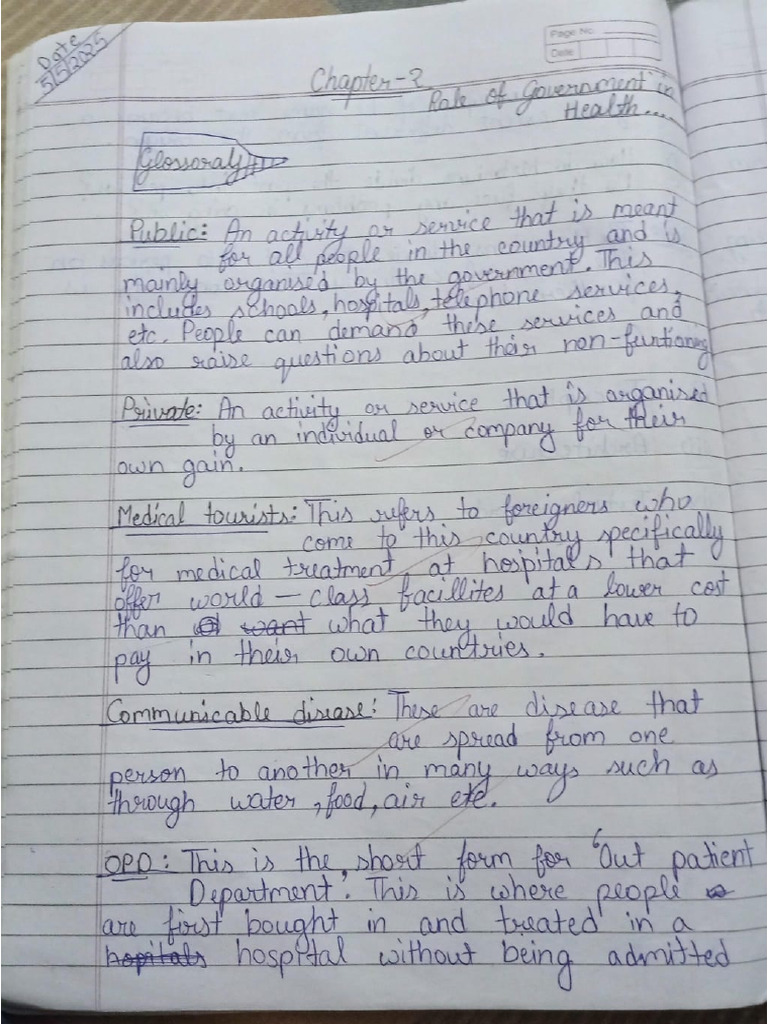 Date
5/5/2025
Page No.
Date
Chapter-2
Role of Government in
Health....
Glossoraly
Public: An activity or service that is meant
for all people in the country and is
mainly organised by the government. This
includes schools, hospitals, telephone services,
etc. People can demand these services and
also raise questions about their non-funtioning
Private: An activity or service that is organised
by an individual or company for their
own gain.
Medical tourists: This refers to foreigners who
come to this country specifically
for medical treatment at hospitals that
offer world-class facillites at a lower cost
than want what they would have to
pay in their own countries.
Communicable disease: These are disease that
are spread from one
person to another in many ways such as
through water, food, air etc.
OPD: This is the short form for 'Out patient
Department'. This is where people
are first bought in and treated in a
hopitals hospital without being admitted